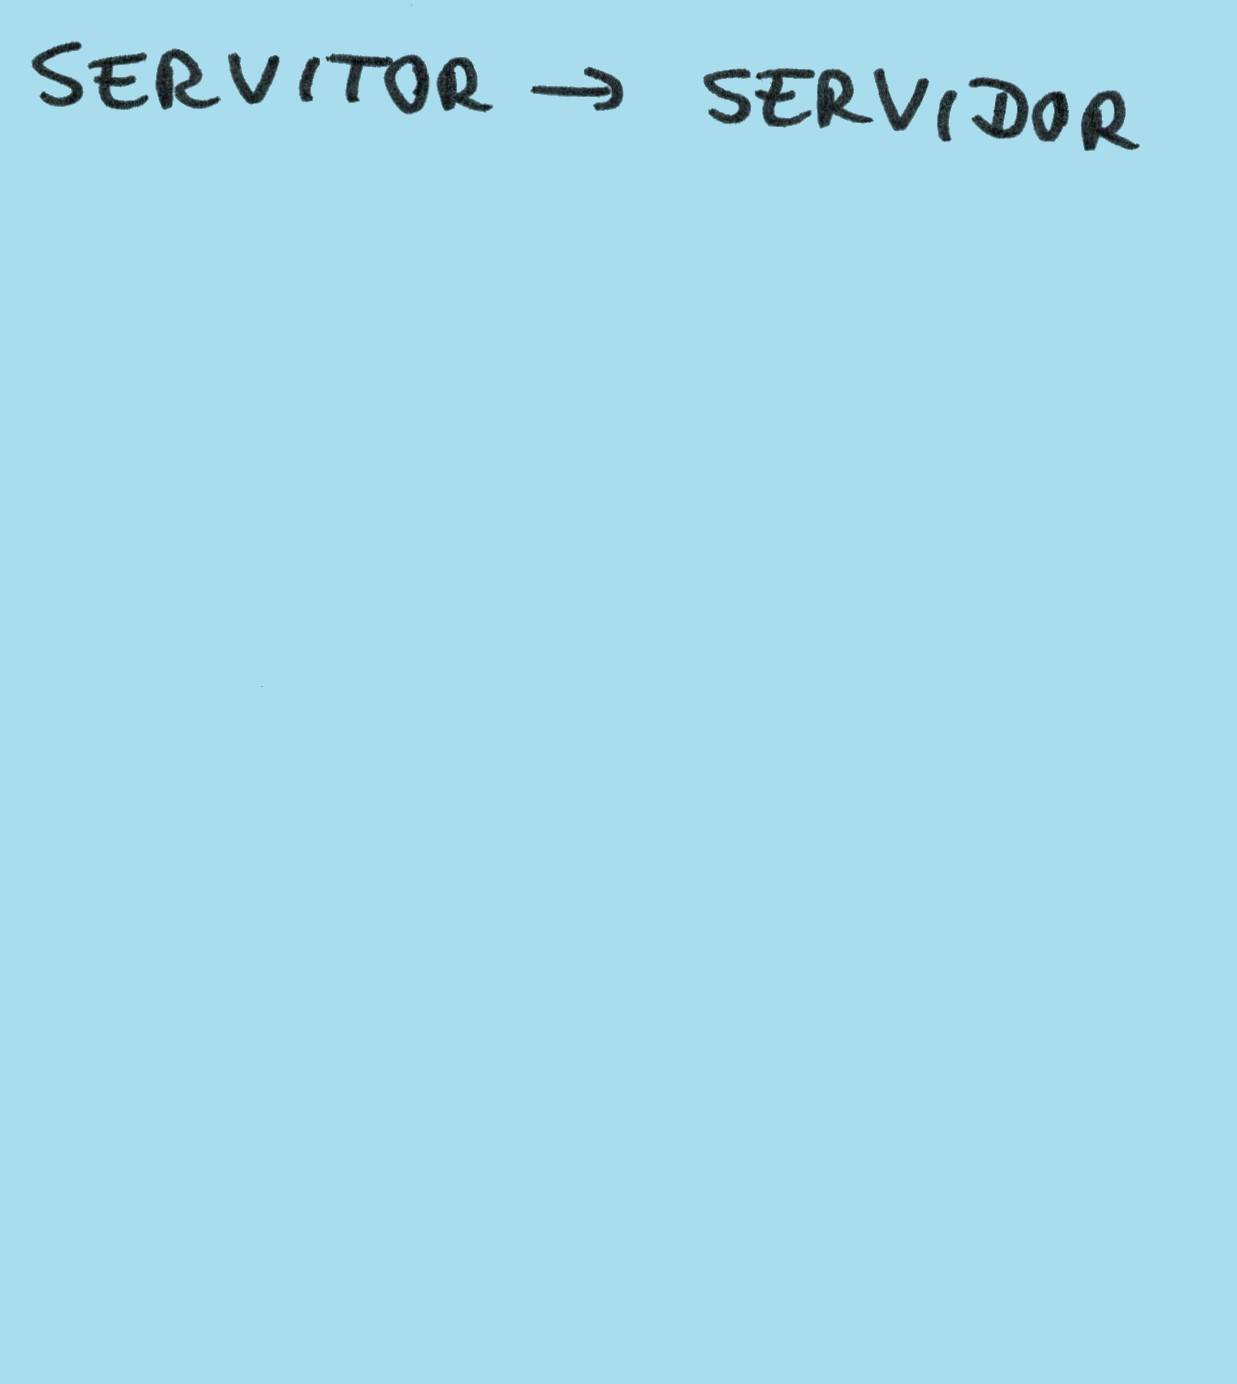 SERVITOR → SERVIDOR